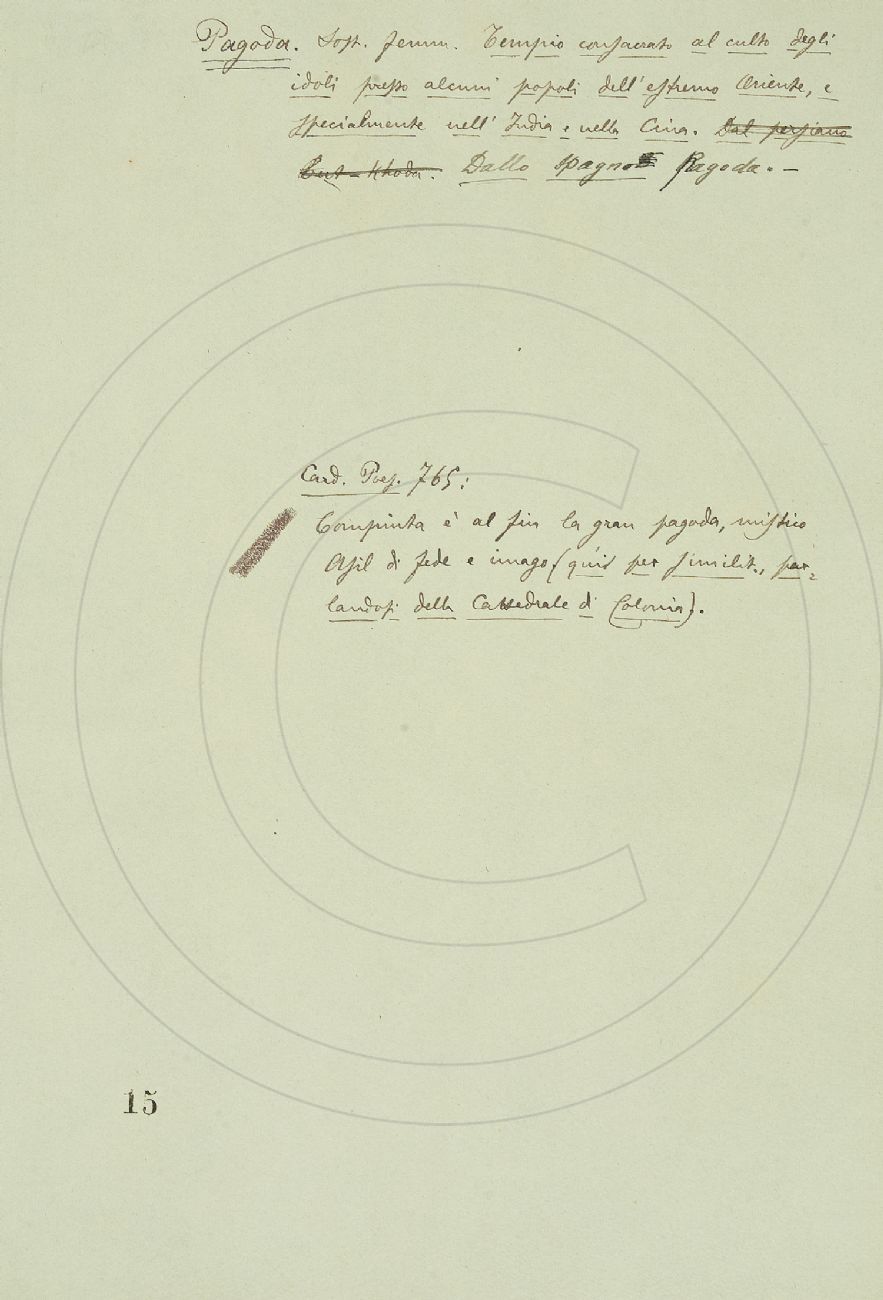 Pagoda. Sost. femm. Tempio consacrato al culto degli
idoli presso alcuni popoli dell'estremo Oriente, e
specialmente nell'India e nella Cina. Dal persiano
But-Khoda. Dallo spagno Pagoda. –
Card. Poes. 765:
Compiuta è al fin la gran pagoda, mistico
Asil di fede e imago (quis per similit., par-
landosi della Cattedrale di Colonia).
15